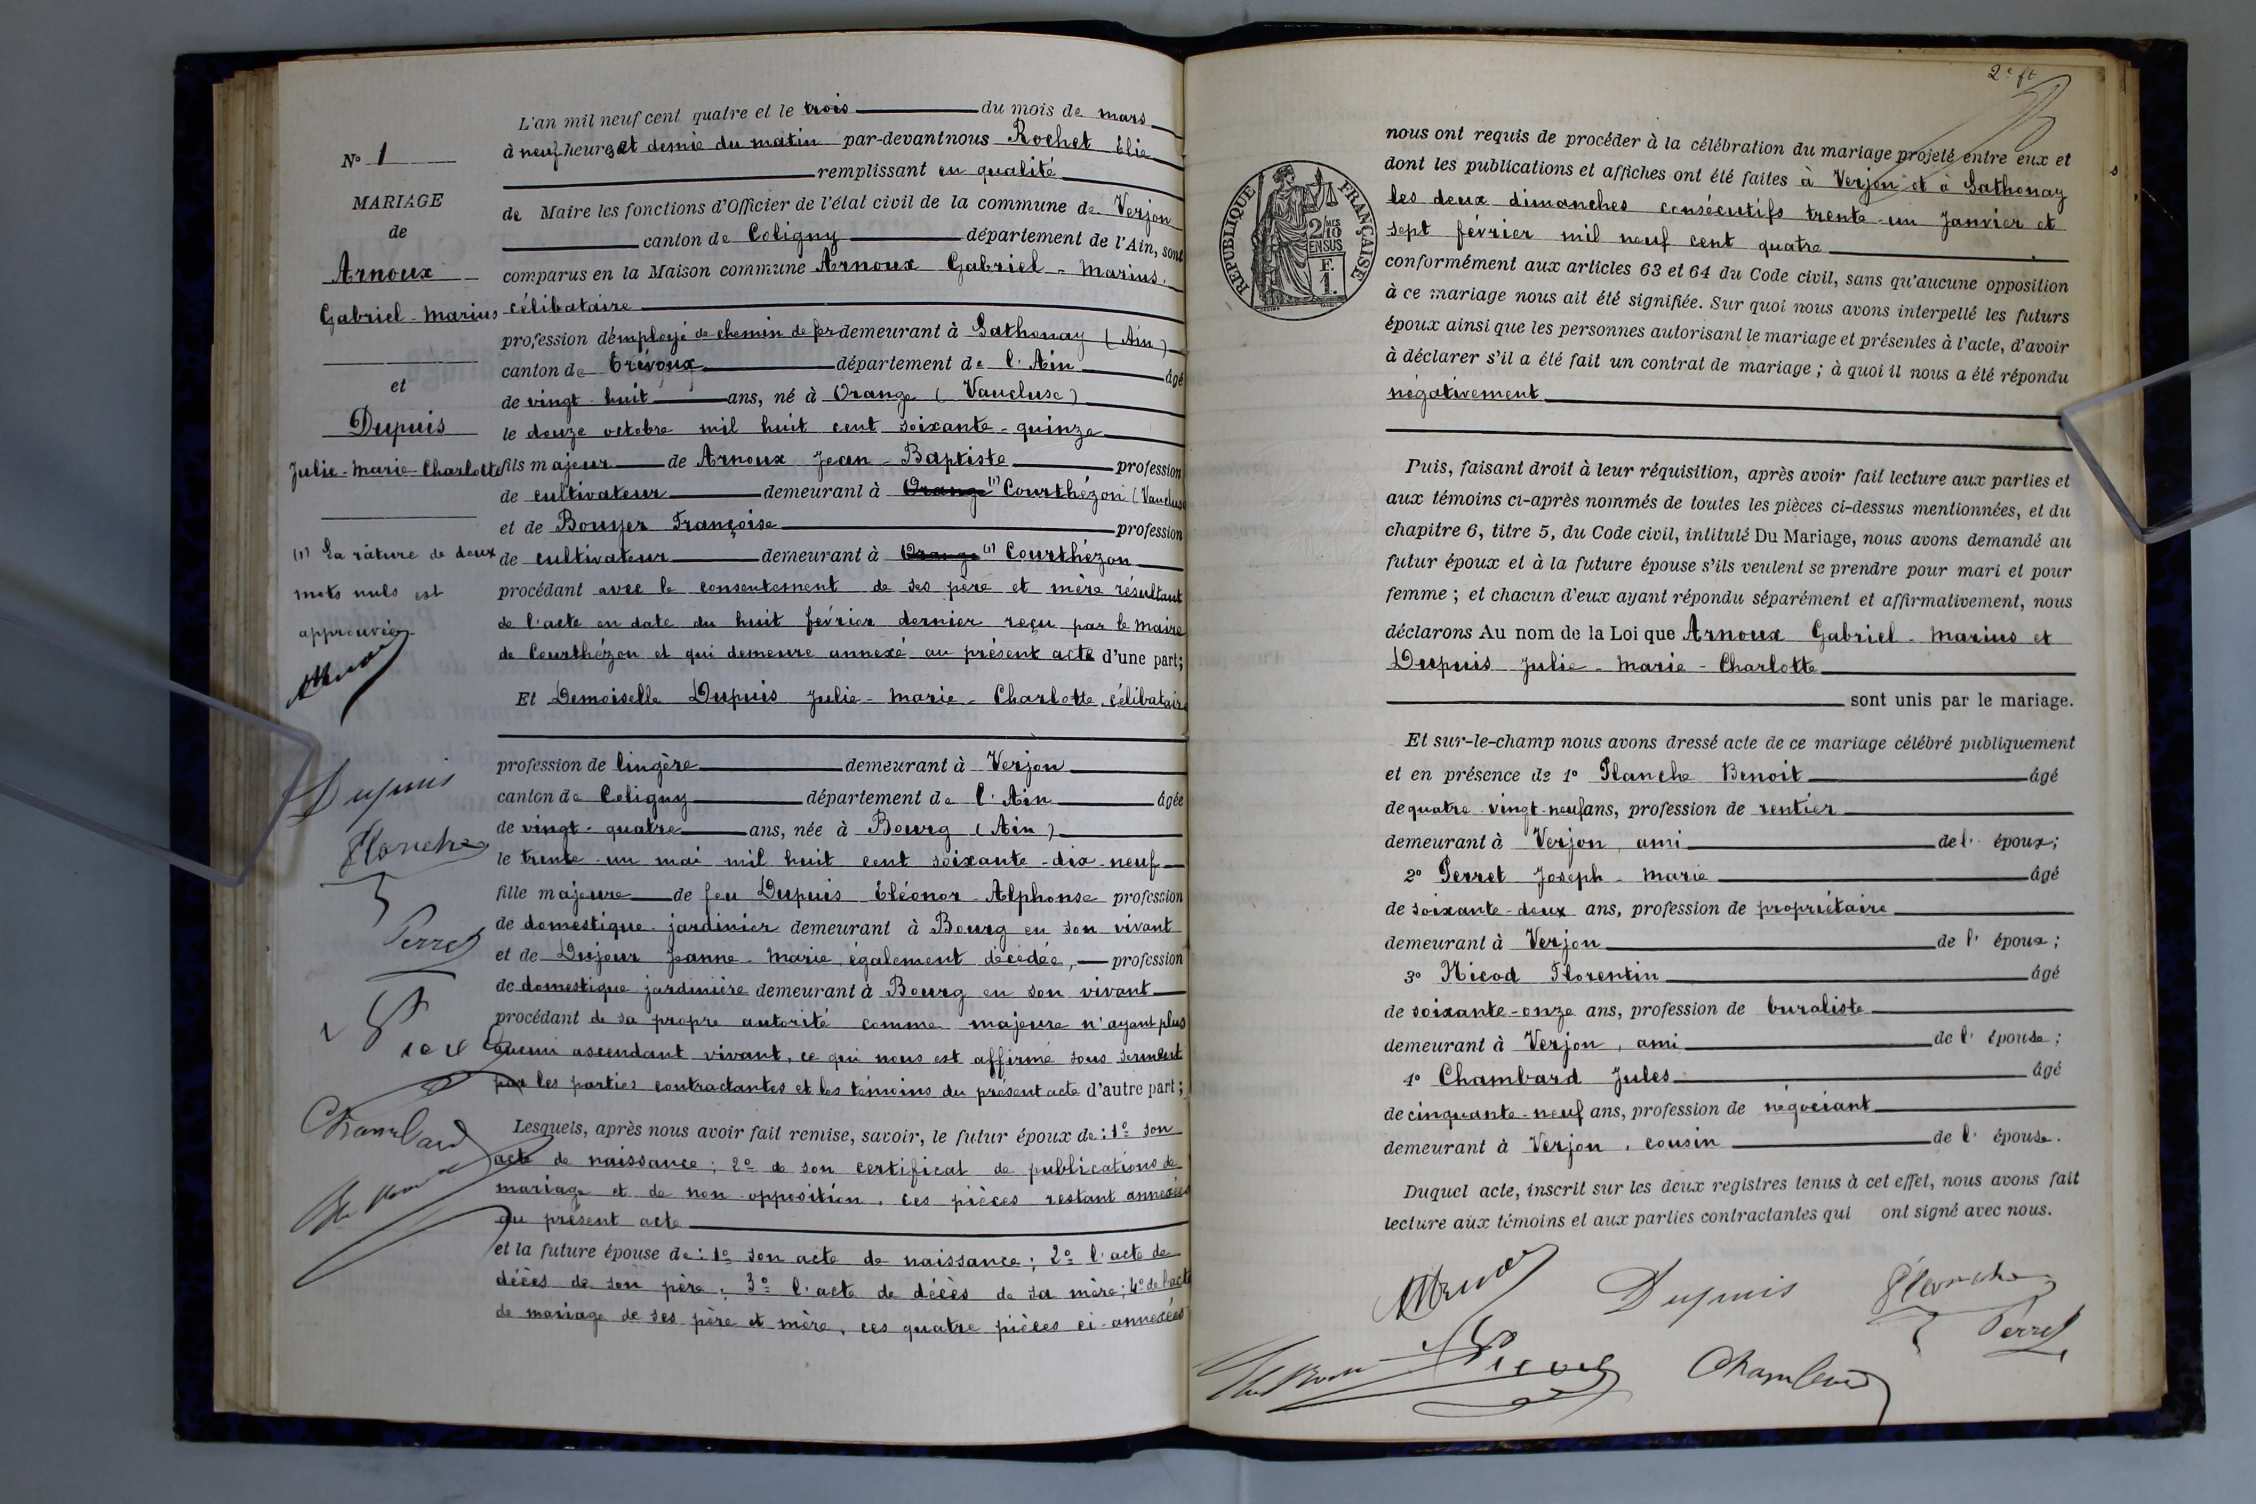 N° 1
MARIAGE
de
Arnoux
Gabriel-Marius
et
Dupuis
Julie-Marie-Charlotte
(1) La râture de deux
mots nuls est
approuvée.
Dupuis
Planche
Perret
Nicod
Chambard
L'an mil neuf cent quatre et le trois du mois de mars
à neuf heures et demie du matin par-devant nous Rochet Élie
remplissant en qualité
de Maire les fonctions d'Officier de l'état civil de la commune de Verjon
canton de Coligny département de l'Ain, sont
comparus en la Maison commune Arnoux Gabriel-Marius,
célibataire
profession d'employé de chemin de fer demeurant à Sathonay (Ain)
canton de Trévoux département de l'Ain âgé
de vingt-huit ans, né à Orange (Vaucluse)
le douze octobre mil huit cent soixante-quinze
fils majeur de Arnoux Jean-Baptiste profession
de cultivateur demeurant à Orange (1) Courthézon (Vaucluse
et de Bouyer Françoise profession
de cultivateur demeurant à Orange (1) Courthézon
procédant avec le consentement de ses père et mère résultant
de l'acte en date du huit février dernier reçu par le Maire
de Courthézon et qui demeure annexé au présent acte d'une part;
Et Demoiselle Dupuis Julie-Marie-Charlotte, célibataire
profession de lingère demeurant à Verjon
canton de Coligny département de l'Ain âgée
de vingt-quatre ans, née à Bourg (Ain)
le trente-un mai mil huit cent soixante-dix-neuf
fille majeure de feu Dupuis Éléonor-Alphonse profession
de domestique-jardinier demeurant à Bourg en son vivant
et de Dujour Jeanne-Marie, également décédée, profession
de domestique jardinière demeurant à Bourg en son vivant
procédant de sa propre autorité comme majeure n'ayant plus
aucun ascendant vivant, ce qui nous est affirmé sous serment
par les parties contractantes et les témoins du présent acte d'autre part;
Lesquels, après nous avoir fait remise, savoir, le futur époux de: 1° son
acte de naissance; 2° de son certificat de publications de
mariage et de non-opposition, ces pièces restant annexées
au présent acte
et la future épouse de: 1° son acte de naissance; 2° l'acte de
décès de son père; 3° l'acte de décès de sa mère; 4° de l'acte
de mariage de ses père et mère, ces quatre pièces ci-annexées
2e ft
RÉPUBLIQUE FRANÇAISE
2/10
EN SUS
F.
1.
nous ont requis de procéder à la célébration du mariage projeté entre eux et
dont les publications et affiches ont été faites à Verjon et à Sathonay
les deux dimanches consécutifs trente-un janvier et
sept février mil neuf cent quatre
conformément aux articles 63 et 64 du Code civil, sans qu'aucune opposition
à ce mariage nous ait été signifiée. Sur quoi nous avons interpellé les futurs
époux ainsi que les personnes autorisant le mariage et présentes à l'acte, d'avoir
à déclarer s'il a été fait un contrat de mariage; à quoi il nous a été répondu
négativement
Puis, faisant droit à leur réquisition, après avoir fait lecture aux parties et
aux témoins ci-après nommés de toutes les pièces ci-dessus mentionnées, et du
chapitre 6, titre 5, du Code civil, intitulé Du Mariage, nous avons demandé au
futur époux et à la future épouse s'ils veulent se prendre pour mari et pour
femme; et chacun d'eux ayant répondu séparément et affirmativement, nous
déclarons Au nom de la Loi que Arnoux Gabriel-Marius et
Dupuis Julie-Marie-Charlotte
sont unis par le mariage.
Et sur-le-champ nous avons dressé acte de ce mariage célébré publiquement
et en présence de 1° Planche Benoit âgé
de quatre-vingt-neuf ans, profession de rentier
demeurant à Verjon, ami de l'époux;
2° Perret Joseph-Marie âgé
de soixante-deux ans, profession de propriétaire
demeurant à Verjon de l'époux;
3° Nicod Florentin âgé
de soixante-onze ans, profession de buraliste
demeurant à Verjon, ami de l'épouse;
4° Chambard Jules âgé
de cinquante-neuf ans, profession de négociant
demeurant à Verjon, cousin de l'épouse.
Duquel acte, inscrit sur les deux registres tenus à cet effet, nous avons fait
lecture aux témoins et aux parties contractantes qui ont signé avec nous.
Dupuis Planche
Perret
Nicod Chambard